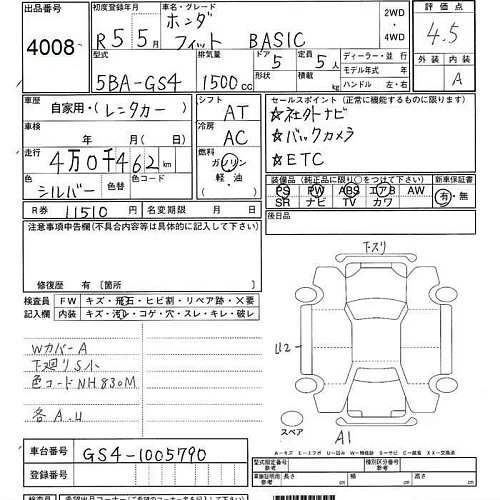 出品番号 初度登録年月 車名・グレード 2WD ・ 4WD 評価点
4008 R5 5月 ホンダ フィット BASIC 4.5
型式 排気量 ドア 5 形状 定員 5人 積載 kg ディーラー・並行 モデル年式 年 ハンドル 左・右 外装 内装
5BA-GS4 1500cc A
車歴 自家用・(レンタカー) シフト AT セールスポイント(正常に機能するものに限ります)
車検 年 月(日) 冷房 AC ☆社外ナビ
走行 4万0千462km 燃料 ガソリン・軽油 ☆バックカメラ
色 シルバー 色替 色コード ☆ETC
装備品(純正品に限り○をつけて下さい) 新車保証書
PS PW ABS エアB AW 有・無
SR ナビ TV カワ
R券 11510円 名変期限 月 日 後日品
注意事項申告欄(不具合内容等は具体的に記入して下さい)
下スリ
修復歴 有 〔箇所 〕
検査員 FW キズ・飛石・ヒビ割・リペア跡・×要
記入欄 内装 キズ・汚レ・コゲ・穴・スレ・キレ・破レ
WカバーA
下廻りS小 U2
色コードNH830M
各A.U
スペア A1
車台番号 GS4-1005790 A-キズ E-エクボ U-凹み W-補修跡 S-サビ C-腐食 XX-交換済
登録番号 型式指定番号 参考 類別区分番号 参考
車検証明用 参考 長さ cm 幅 cm 高さ cm
検査員 希望出品コーナー(ご希望のコーナー名を記入して下さい)